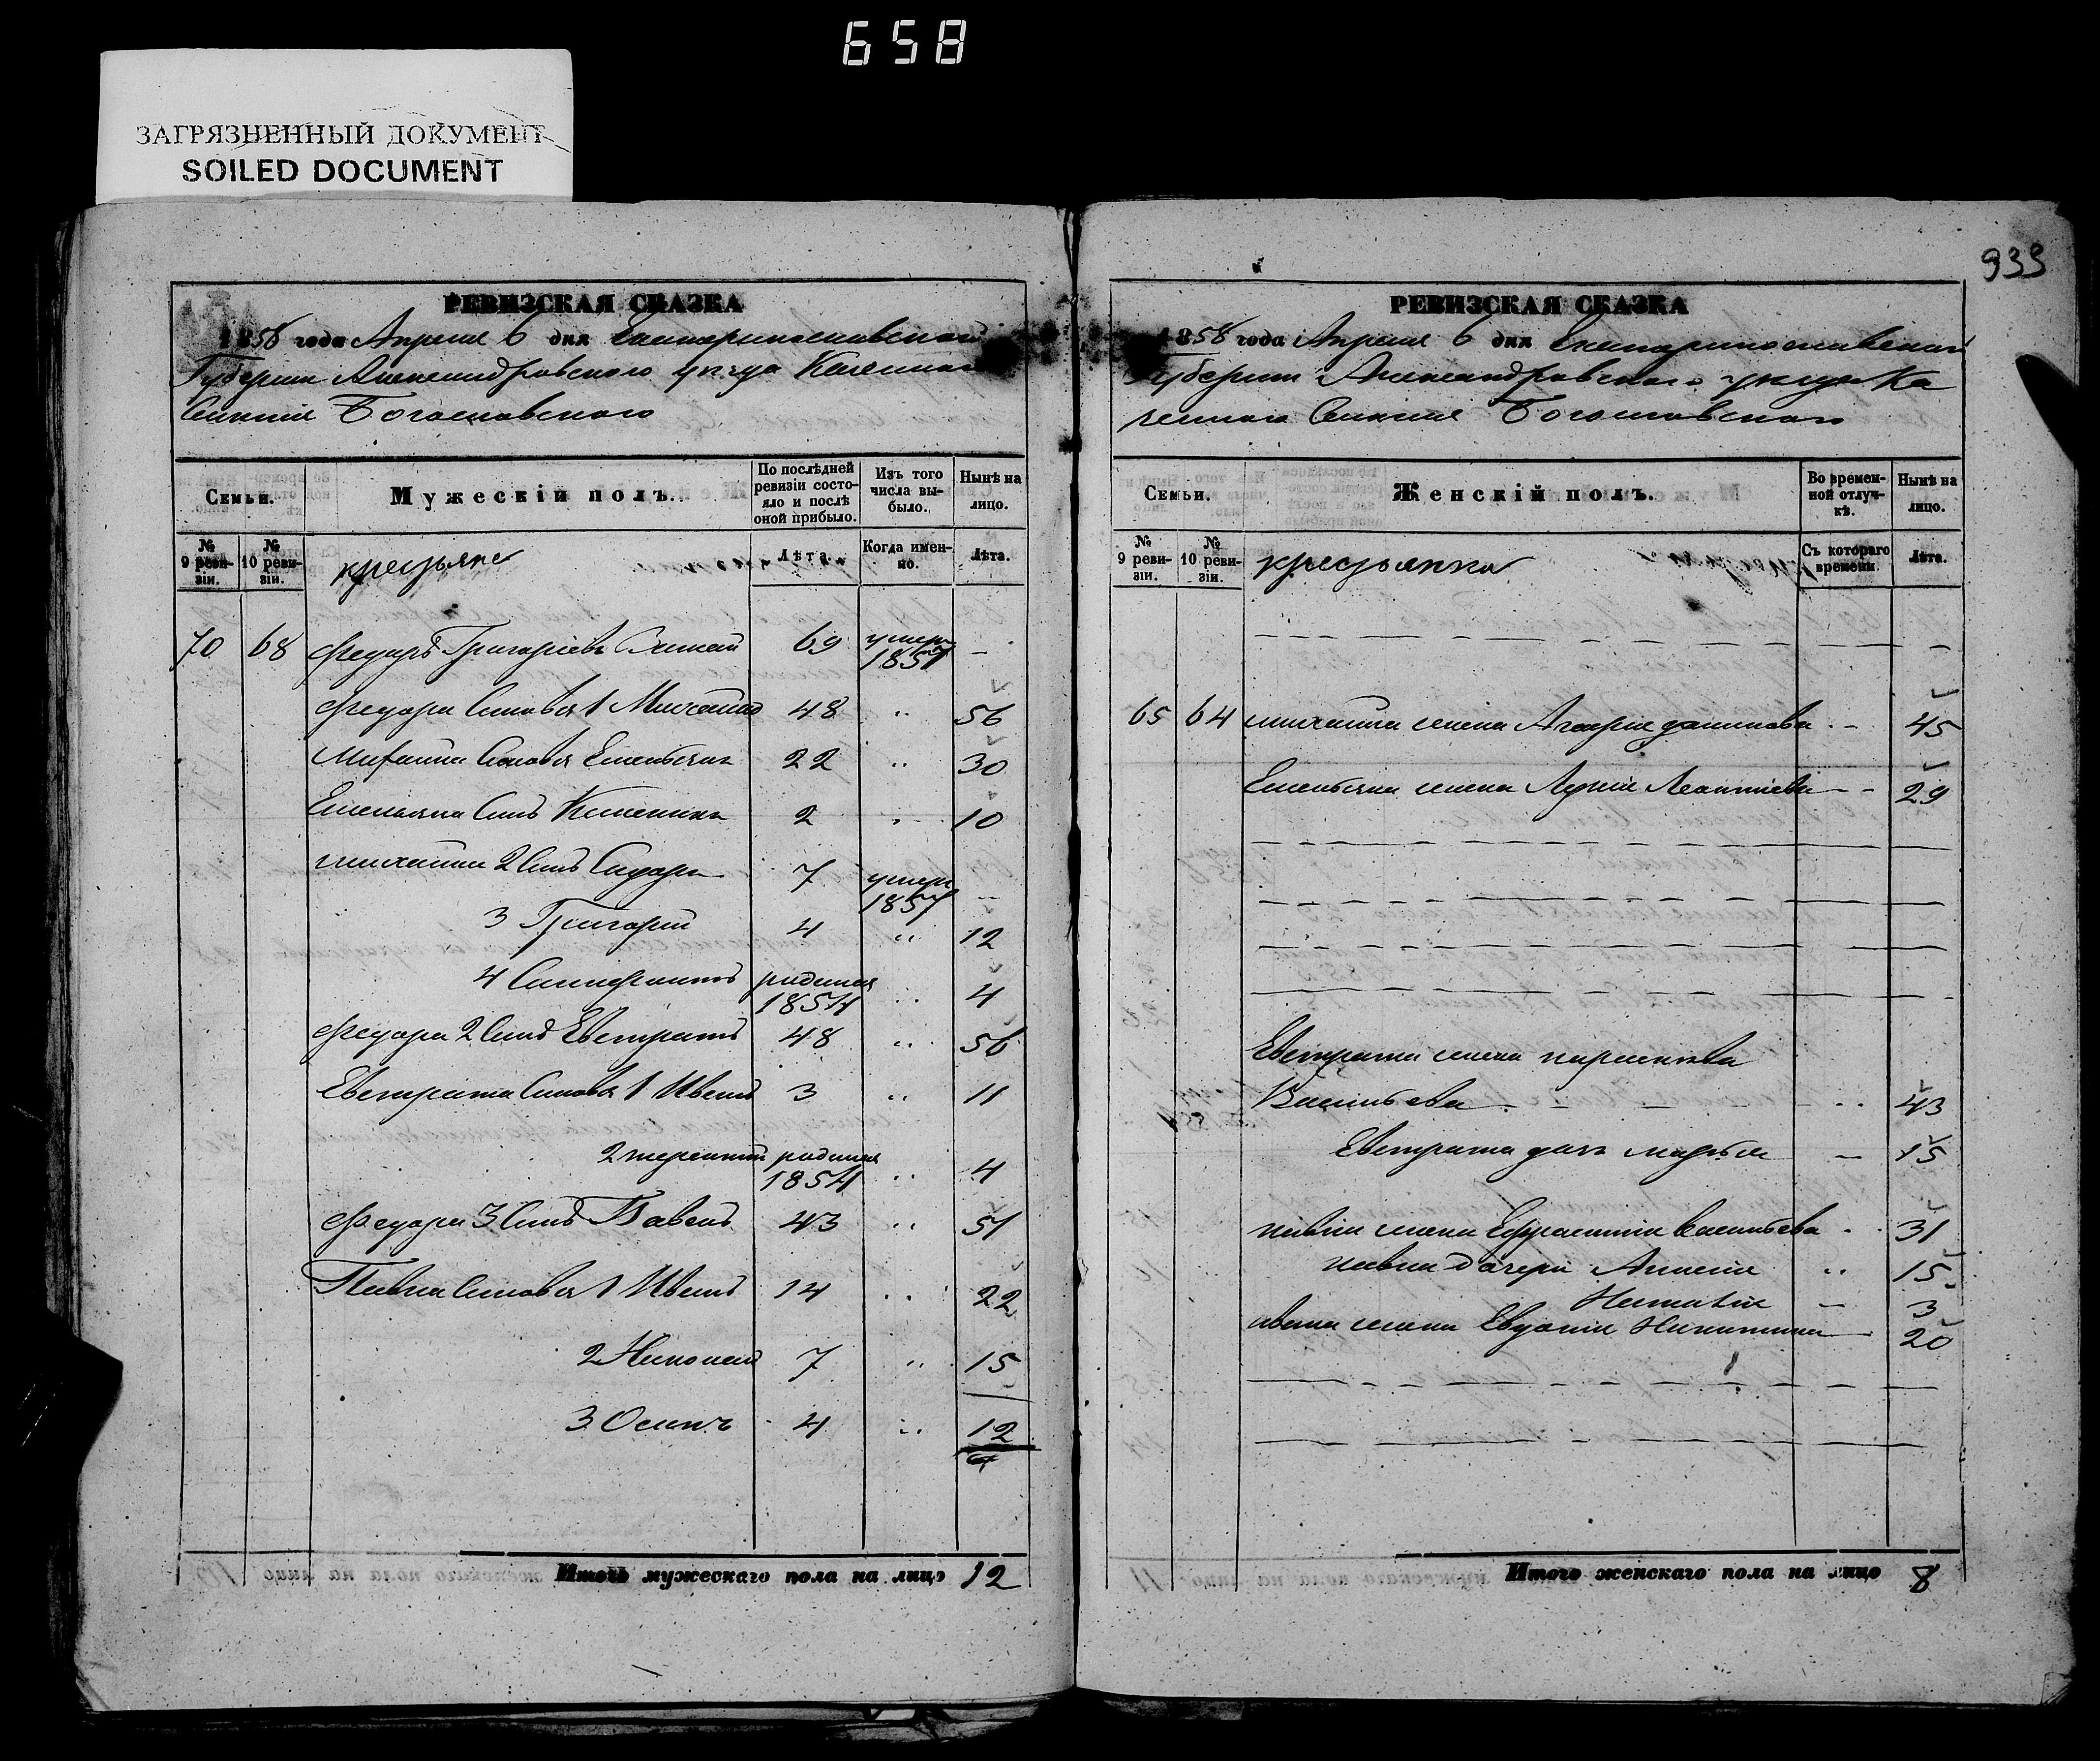 658
ЗАГРЯЗНЕННЫЙ ДОКУМЕНТ
SOILED DOCUMENT
РЕВИЗСКАЯ СКАЗКА
1858 года Апреля 6 дня Екатеринославской
Губернии Александровского уезда Казенного
Селения Богословского
Семьи.
Мужескій полъ.
По послѣдней ревизіи состояло и послѣ оной прибыло.
Изъ того числа выбыло.
Нынѣ на лицо.
№ 9 ревизіи.
№ 10 ревизіи.
крестьяне
Лѣта.
Когда именно.
Лѣта.
70 68 Федоръ Григоріевъ 69 умеръ 1857 -
Федора Сыновья 1 Михайло 48 " 56
Михайла Сыновья Емельянъ 22 " 30
Емельяна Сынъ 2 " 10
михайла 2 Сынъ Сидоръ 7 умеръ 1857 -
3 Григорій 4 " 12
4 родился 1854 " 4
Федора 2 Сынъ Евстратъ 48 " 56
Евстрата Сыновья 1 Иванъ 3 " 11
2 терентий родился 1854 " 4
Федора 3 Сынъ Павелъ 43 " 51
Павла Сыновья 1 Иванъ 14 " 22
2 Николай 7 " 15
3 Осипъ 4 " 12
Итого мужескаго пола на лицо 12
939
РЕВИЗСКАЯ СКАЗКА
1858 года Апреля 6 дня Екатеринославской
Губернии Александровского уезда Ка
зенного Селения Богословского
Семьи.
Женскій полъ.
Во временной отлучкѣ.
Нынѣ на лицо.
№ 9 ревизіи.
№ 10 ревизіи.
крестьянки
Съ котораго времени.
Лѣта.
65 64 михайла жена данилова - 45
Емельяна жена Леонтіева - 29
Евстрата жена
Васильева - 43
Евстрата дочь марья - 15
павла жена Васильева - 31
павла дочери " 15
Наталія - 3
ивана жена Евдокія Никитина - 20
Итого женскаго пола на лицо 8